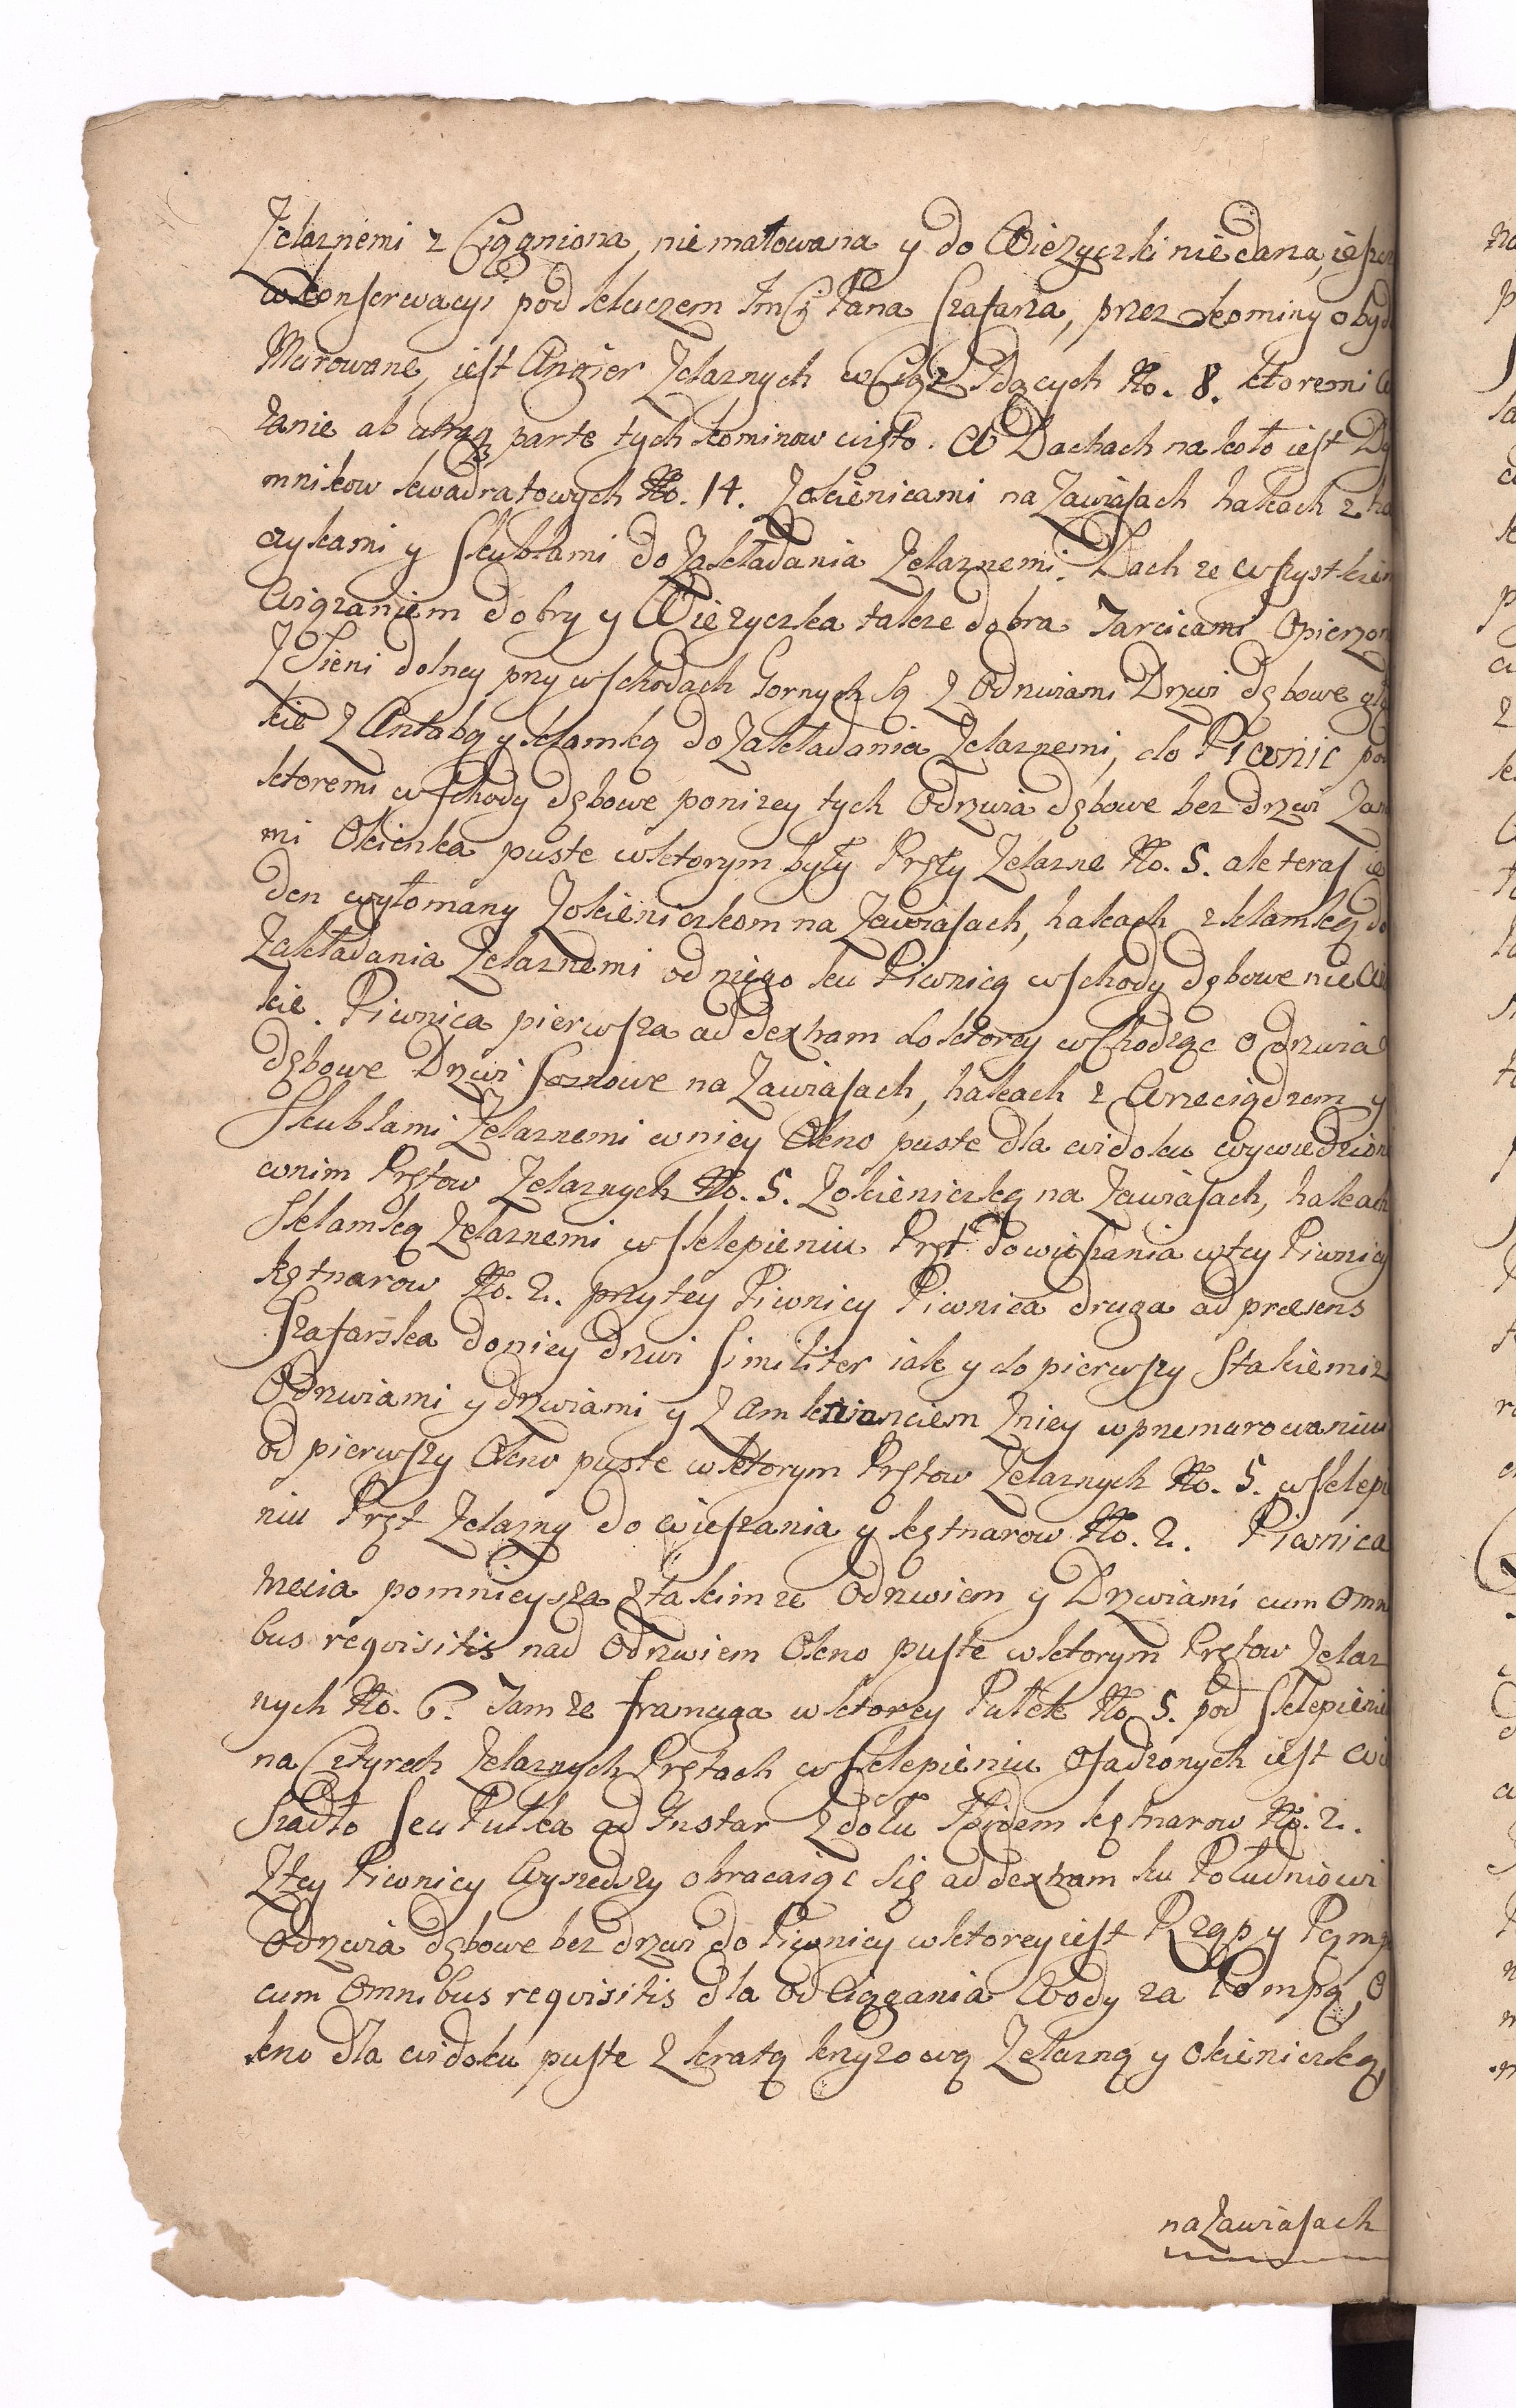 Zelaznemi z Ciągniona, nie matowana y do Wiezyczki nie dana, ieszcz
w konserwacyi pod kluczem ImCi Pana Szafarza, przez kominy obyd
Murowane, iest Ankier Zelaznych w Ciąz Idących No. 8. ktoremi
zanie ab utrąq parte tych kominow wisto. W Dachach na koło iest Dy
mnikow kwadratowych No. 14. Zokienicami na Zawiasach hakach z ha
czykami y Skublami do Zakładania Zelaznemi. Dach ze wszystkim
Wiązaniem dobry y Wiezyczka takze dobra Tarcicami Opierzon
Z Sieni dolney przy wschodach Gornych Są z Odrzwiami Drzwi dębowe glą
kie z Antabą y klamką do Zakładania Zelaznemi, do Piwnic pod
ktoremi wschody dębowe ponizey tych Odrzwia dębowe bez drzwi Zan
mi Okienka puste w ktorym były Pręty Zelazne No. 5. ale teras ie
den wyłomany Zokieniczkom na Zawiasach, hakach z klamką do
Zakładania Zelaznemi od niego ku Piwnicą wschody dębowe nie
kie. Piwnica pierwsza ad dextram do ktorey wchodząc Odrzwia
dębowe Drzwi sosnowe na Zawiasach, hakach z Wrzeciądzem y
Skublami Zelaznemi w niey Okno puste dla widoku wywiedzion
w nim Prętow Zelaznych No. 5. Zokieniczką na Zawiasach, hakach
Sklamką Zelaznemi w sklepieniu Pręt do wieszania w tey Piwnicy
kętnarow No. 2. przy tey Piwnicy Piwnica druga ad præsens
Szafarska do niey drzwi similiter iak y do pierwszy Stakiemiz
Odrzwiami y drzwiami y Zamknieńciem Zniey w przemurowaniu
od pierwszy Okno puste w ktorym Prętow Zelaznych No. 5. w sklepi
niu Pręt Zelazny do wieszania y kętnarow No. 2. Piwnica
trzecia pomnieysza z takimze Odrzwiem y Drzwiami cum Omni
bus reqvisitis nad Odrzwiem Okno puste w ktorym Prętow Zelaz
nych No. 6. Tamze framuga w ktorey Pułek No. 5. pod Sklepienie
na Cztyrech Zelaznych Prętach w sklepieniu Osadzonych iest Wie
szadło seu Pułka ad Instar z dołu Ibidem kętnarow No. 2.
Ztey Piwnicy Wyszedszy obracaiąc się ad dextram ku Południowi
Odrzwia dębowe bez drzwi do Piwnicy w ktorey iest Rząp y Pąmp
cum Omnibus reqvisitis dla Od Ciągania Wody za Pompą, O
kno dla widoku puste z kratą krzyzową Zelazną y okieniczką,
na Zawiasach